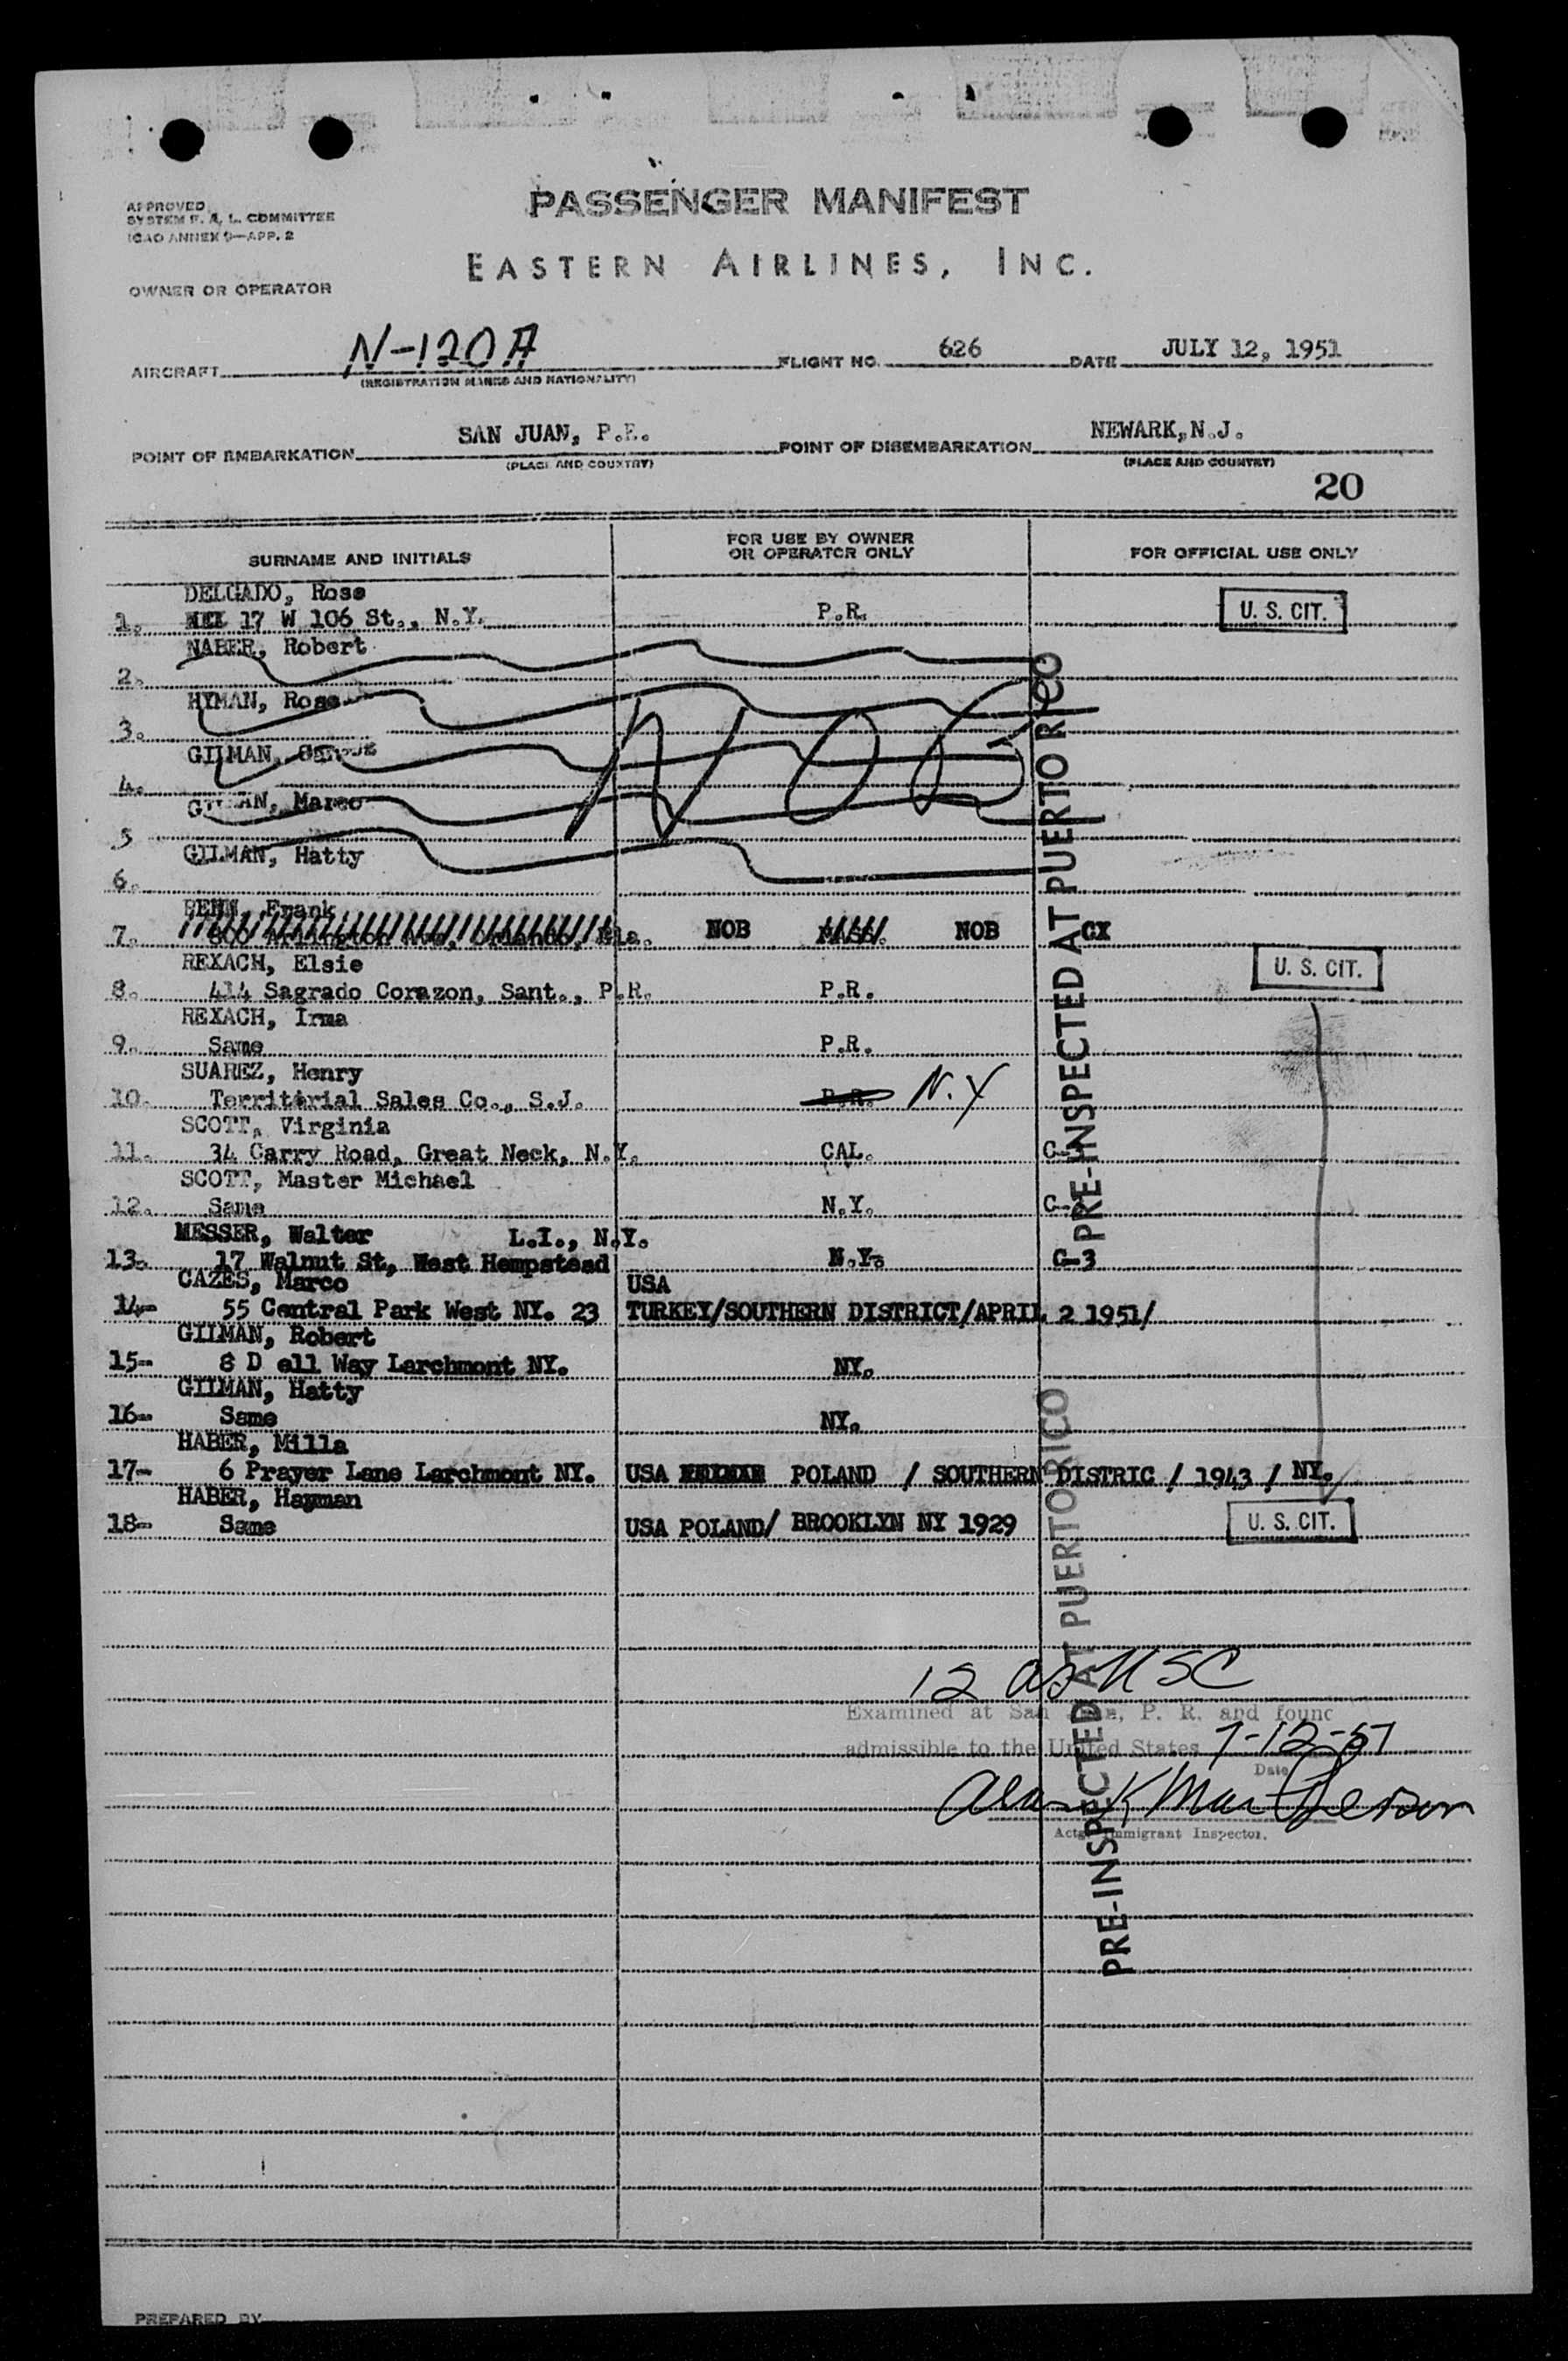 PASSENGER MANIFEST
APPROVED
SYSTEM F. A. L. COMMITTEE
ICAO ANNEX 9—APP. 2
EASTERN AIRLINES, INC.
OWNER OR OPERATOR
AIRCRAFT N-120A FLIGHT NO. 626 DATE JULY 12, 1951
(REGISTRATION MARKS AND NATIONALITY)
POINT OF EMBARKATION SAN JUAN, P.R. POINT OF DISEMBARKATION NEWARK, N.J.
(PLACE AND COUNTRY) (PLACE AND COUNTRY)
20
SURNAME AND INITIALS FOR USE BY OWNER OR OPERATOR ONLY FOR OFFICIAL USE ONLY
DELGADO, Rose
1. 17 W 106 St., N.Y. P.R. U. S. CIT.
NABER, Robert
2.
HYMAN, Rose
3.
GILMAN,
4.
GILMAN, Marco
5
GILMAN, Hatty
6.
NOB
Frank
7. Fla. NOB NOB CX
REXACH, Elsie U. S. CIT.
8. 414 Sagrado Corazon, Sant., P.R. P.R.
REXACH, Irma
9. Same P.R.
SUAREZ, Henry
10. Territorial Sales Co., S.J. P.R. N.Y
SCOTT, Virginia
11. 34 Carry Road, Great Neck, N.Y. CAL.
SCOTT, Master Michael
12. Same N.Y.
MESSER, Walter L.I., N.Y.
13. 17 Walnut St, West Hempstead N.Y. G-3
CAZES, Marco USA
14- 55 Central Park West NY. 23 TURKEY/SOUTHERN DISTRICT/APRIL 2 1951/
GILMAN, Robert
15- 8 D ell Way Larchmont NY. NY.
GILMAN, Hatty
16- Same NY.
HABER, Milla
17- 6 Prayer Lane Larchmont NY. USA POLAND / SOUTHERN DISTRIC / 1943 / NY.
HABER, Hayman
18- Same USA POLAND/ BROOKLYN NY 1929 U. S. CIT.
PRE-INSPECTED AT PUERTO RICO
PRE-INSPECTED AT PUERTO RICO
12 as USC
Examined at San Juan, P. R. and found
admissible to the United States 7-12-51
Date
Actg. Immigrant Inspector.
PREPARED BY